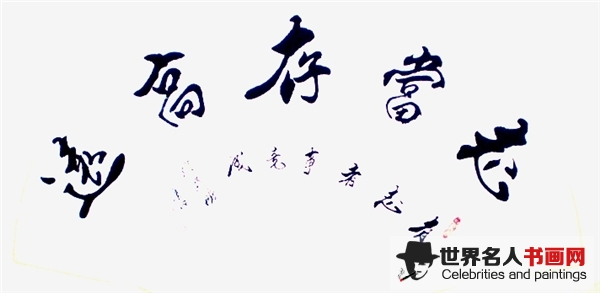 志當存高遠
有志者事竟成
世界名人书画网
Celebrities and paintings